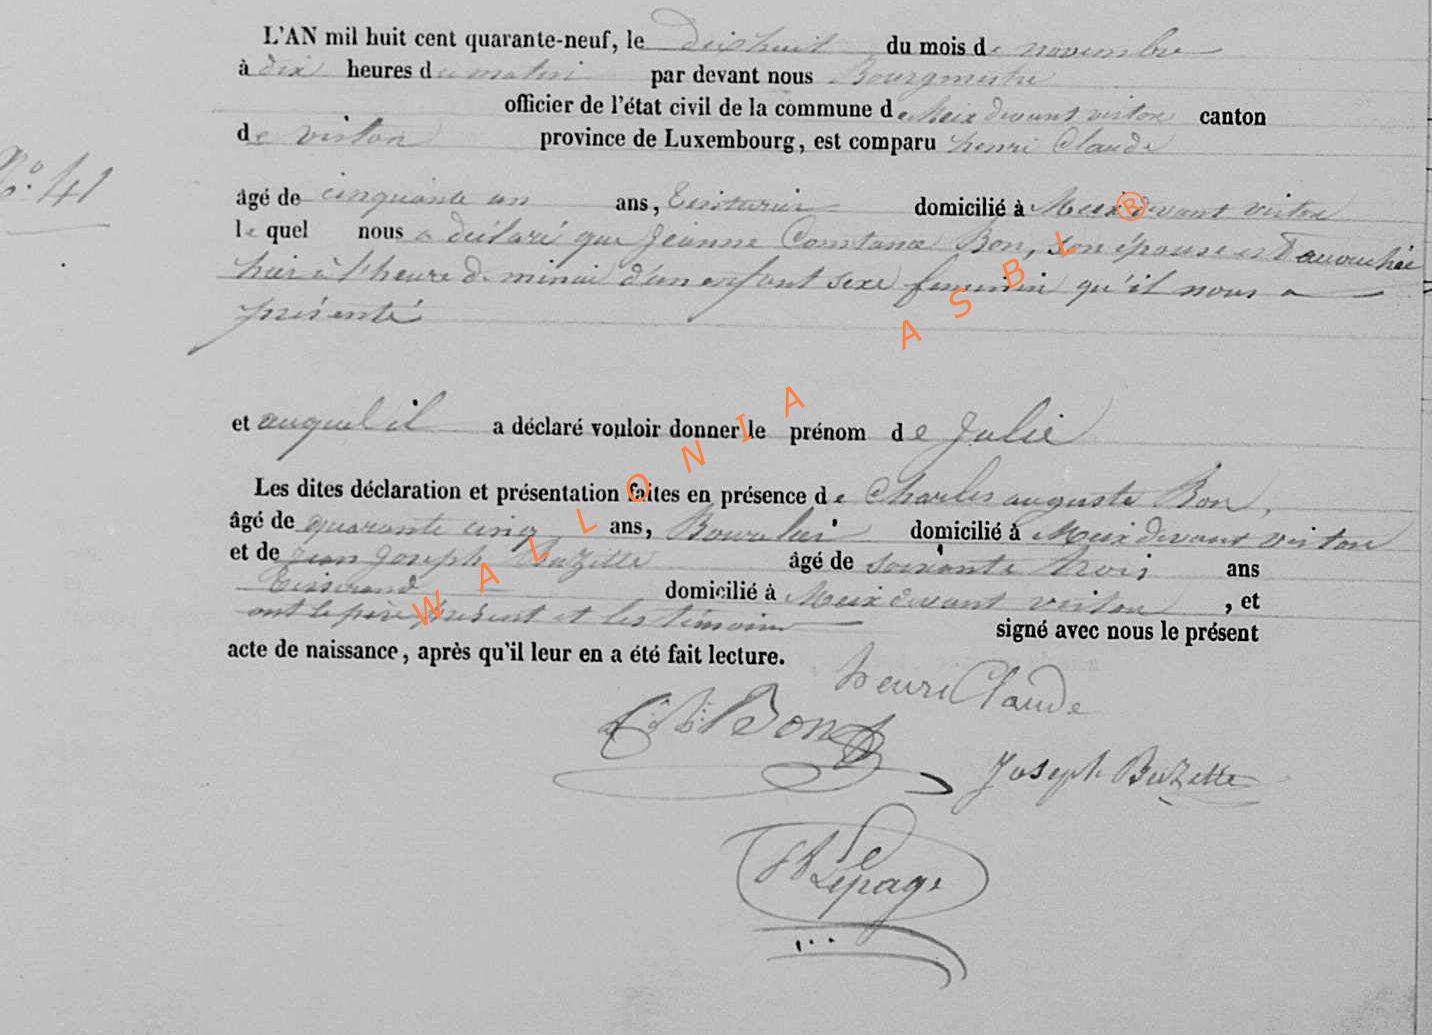 L'AN mil huit cent quarante-neuf, le dix huit du mois de novembre
à dix heures du matin par devant nous Bourgmestre
officier de l'état civil de la commune de Meix devant virton canton
de virton province de Luxembourg, est comparu henri Claude
N.° 41
âgé de cinquante un ans, Teinturier domicilié à Meix devant virton
le quel nous a déclaré que Jeanne Constance Bon, son épouse est accouchée
hier à l'heure de minuit d'un enfant sexe feminin qu'il nous a
présenté
et auquel il a déclaré vouloir donner le prénom de Julie
Les dites déclaration et présentation faites en présence de Charles auguste Bon,
âgé de quarante cinq ans, Bourelier domicilié à Meix devant virton
et de Jean Joseph Buzette âgé de soixante trois ans
Tisserand domicilié à Meix devant virton, et
ont le père présent et les témoins signé avec nous le présent
acte de naissance, après qu'il leur en a été fait lecture.
henri Claude
Bon
Joseph Buzette
Lepage
WALLONIA ASBL ®